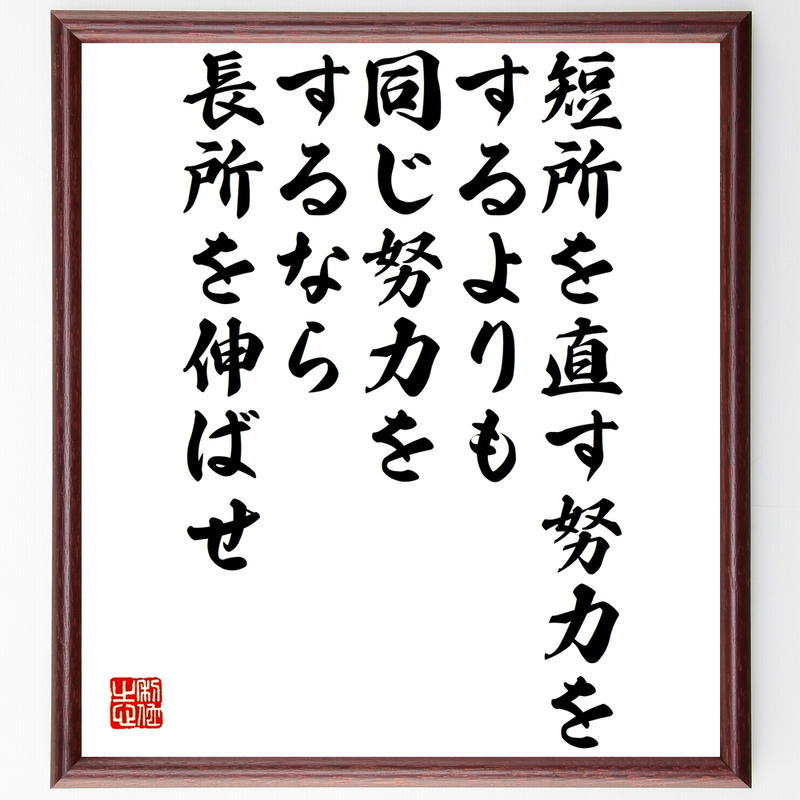 短所を直す努力を
するよりも
同じ努力を
するなら
長所を伸ばせ